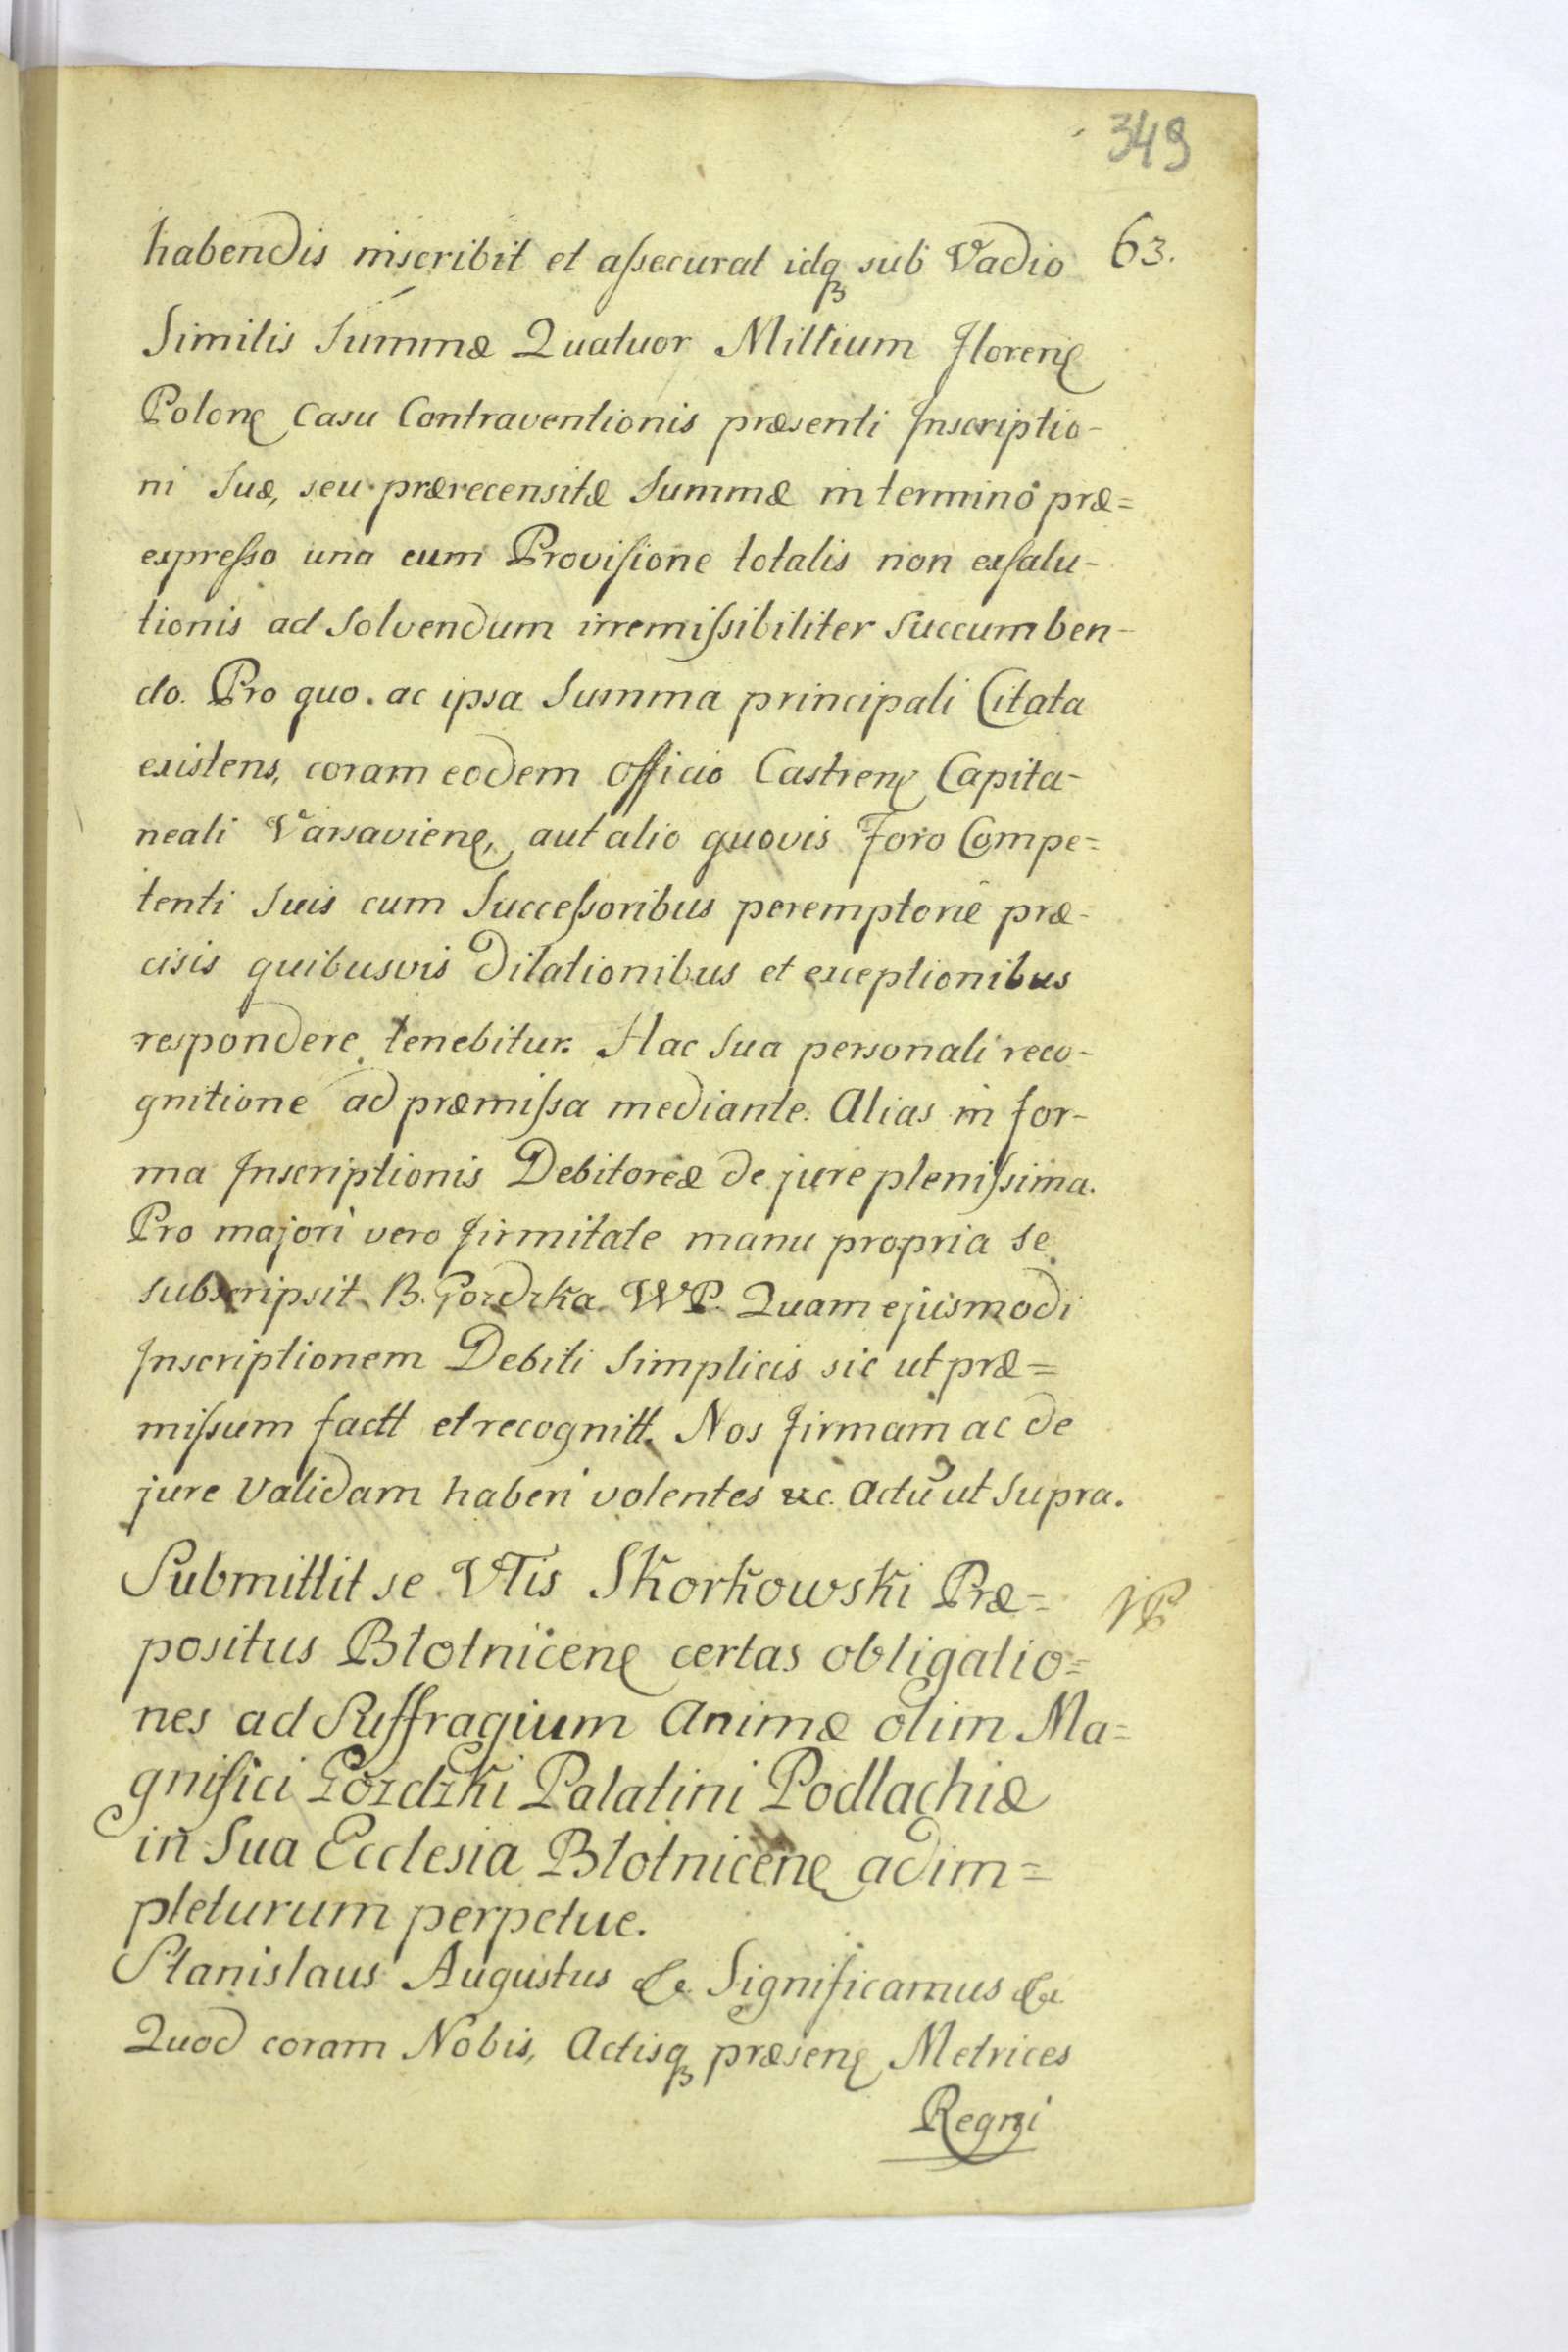 349
habendis inscribit et aſsecurat idqꝫ sub Vadio 63.
Similis Summæ Quatuor Millium Florenꝭ
Polonꝭ Casu Contraventionis præsenti Inscriptio-
ni Suæ, seu prærecensitæ Summæ in termino præ=
expreſso una cum Proviſione totalis non exſalu-
tionis ad Solvendum irremiſsibiliter Succumben-
do. Pro quo. ac ipsa Summa principali Citata
existens, coram eodem Officio Castrenꝭ Capita-
neali Varsavienꝭ, aut alio quovis Foro Compe=
tenti Suis cum Succeſsoribus peremptorie præ-
cisis quibusvis Dilationibus et exceptionibus
respondere tenebitur. Hac Sua personali reco-
gnitione ad præmiſsa mediante. Alias in for-
ma Inscriptionis Debitoreæ de jure pleniſsima.
Pro majori vero firmitate manu propria se
subscripsit B. Gozdzka. WP. Quam ejusmodi
Inscriptionem Debiti Simplicis sic ut præ=
miſsum factt et recognitt. Nos firmam ac de
jure Validam haberi volentes &c. Actū ut Supra.
Submittit se VTis Skorkowski Præ=
positus Błotnicenꝭ certas obligatio=
nes ad Suffragium Animæ olim Ma=
gnifici Gozdzki Palatini Podlachiæ
in Sua Ecclesia Błotnicenꝭ adim=
pleturum perpetue.
Stanislaus Augustus &c. Significamus &c.
Quod coram Nobis, Actisqꝫ præsenꝭ Metrices
Regni